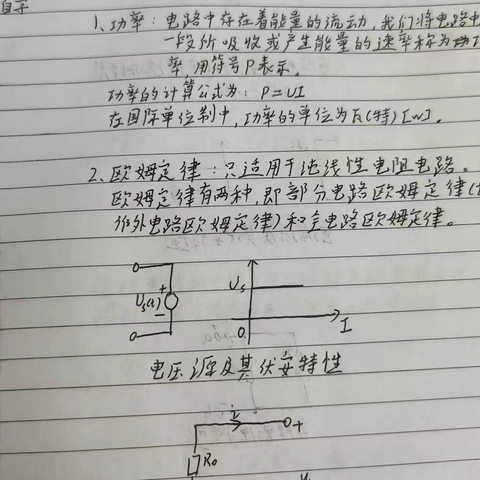 1、功率：电路中存在着能量的流动,我们将电路中
一段所吸收或产生能量的速率称为功
率,用符号P表示。
功率的计算公式为: P=UI
在国际单位制中,功率的单位为瓦(特)[W]。
2、欧姆定律：只适用于纯线性电阻电路。
欧姆定律有两种,即部分电路欧姆定律(
作外电路欧姆定律)和全电路欧姆定律。
+
Us(t)
-
Us
0
I
电压源及其伏安特性
i
+
R₀